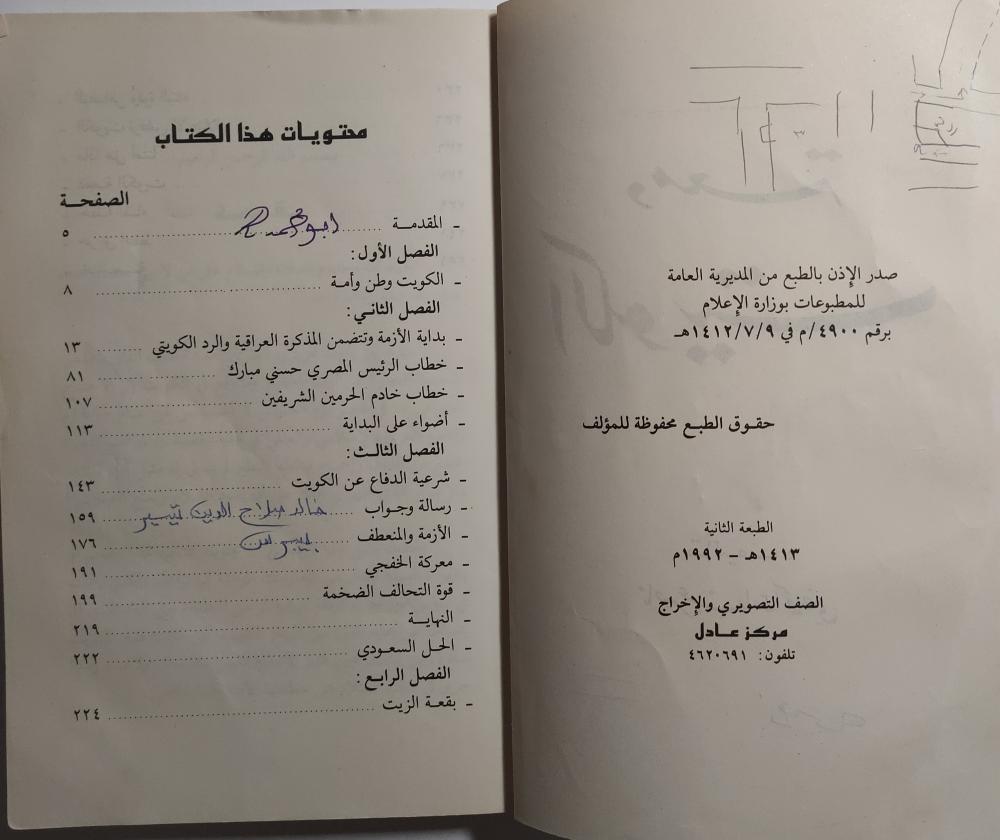 صدر الإذن بالطبع من المديرية العامة
للمطبوعات بوزارة الإعلام
برقم ٤٩٠٠/م في ١٤١٢/٧/٩هـ
حقوق الطبع محفوظة للمؤلف
الطبعة الثانية
١٤١٣هـ - ١٩٩٢م
الصف التصويري والإخراج
مركز عادل
تلفون: ٤٦٢٠٦٩١
محتويات هذا الكتاب
الصفحة
- المقدمة ٥
الفصل الأول:
- الكويت وطن وأمة ٨
الفصل الثاني:
- بداية الأزمة وتتضمن المذكرة العراقية والرد الكويتي ١٣
- خطاب الرئيس المصري حسني مبارك ٨١
- خطاب خادم الحرمين الشريفين ١٠٧
- أضواء على البداية ١١٣
الفصل الثالث:
- شرعية الدفاع عن الكويت ١٤٣
- رسالة وجواب ١٥٩
خالد صلاح الدين
- الأزمة والمنعطف ١٧٦
- معركة الخفجي ١٩١
- قوة التحالف الضخمة ١٩٩
- النهاية ٢١٩
- الحل السعودي ٢٢٢
الفصل الرابع:
- بقعة الزيت ٢٢٤